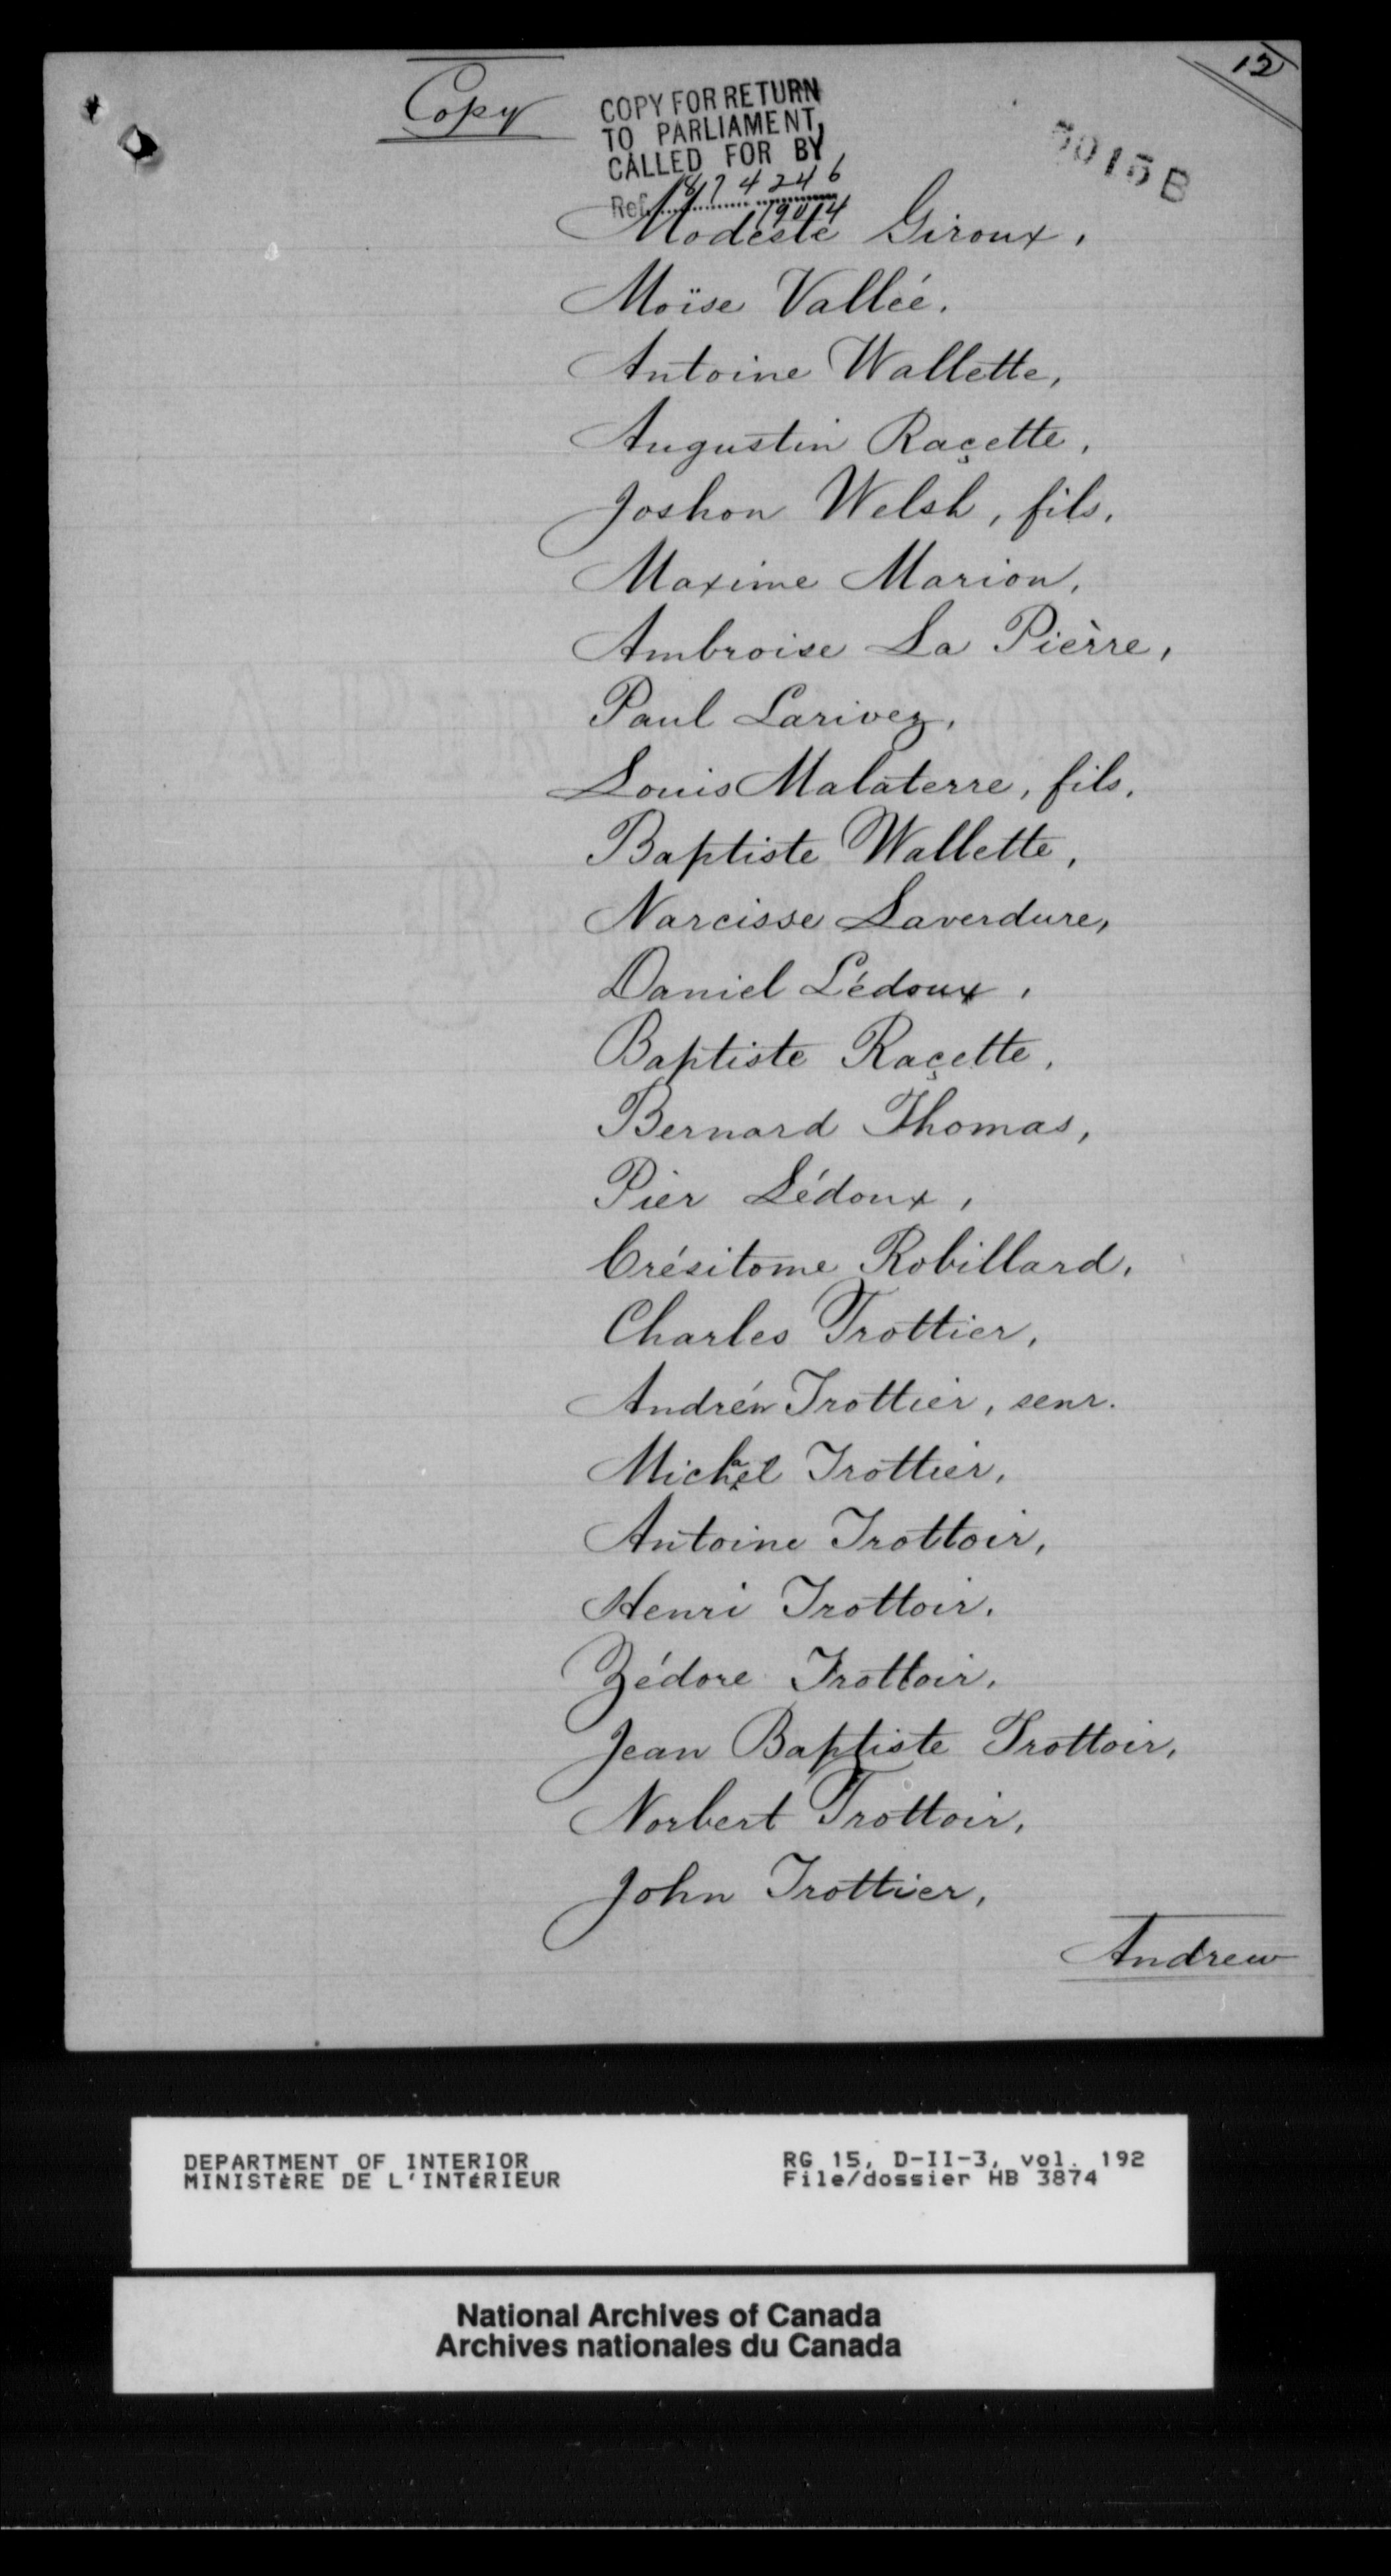 12
Copy
COPY FOR RETURN
TO PARLIAMENT,
CALLED FOR BY
Ref. 1874246
1904
Modeste Giroux,
Moïse Vallée.
Antoine Wallette,
Augustin Raçette,
Joshon Welsh, fils,
Maxime Marion,
Ambroise La Pièrre,
Paul Larivez,
Louis Malaterre, fils,
Baptiste Wallette,
Narcisse Laverdure,
Daniel Lédoux,
Baptiste Raçette,
Bernard Thomas,
Pier Lédoux,
Crésitome Robillard,
Charles Trottier,
Andréw Trottier, senr.
Michel Trottier,
Antoine Trottoir,
Henri Trottoir,
Zédore Trottoir,
Jean Baptiste Trottoir,
Norbert Trottoir,
John Trottier,
Andrew
DEPARTMENT OF INTERIOR
MINISTÈRE DE L'INTÉRIEUR
RG 15, D-II-3, vol. 192
File/dossier HB 3874
National Archives of Canada
Archives nationales du Canada